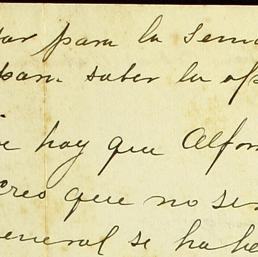 para la sema
para saber la op
hay que Alfon
Creo que no se
general se habe